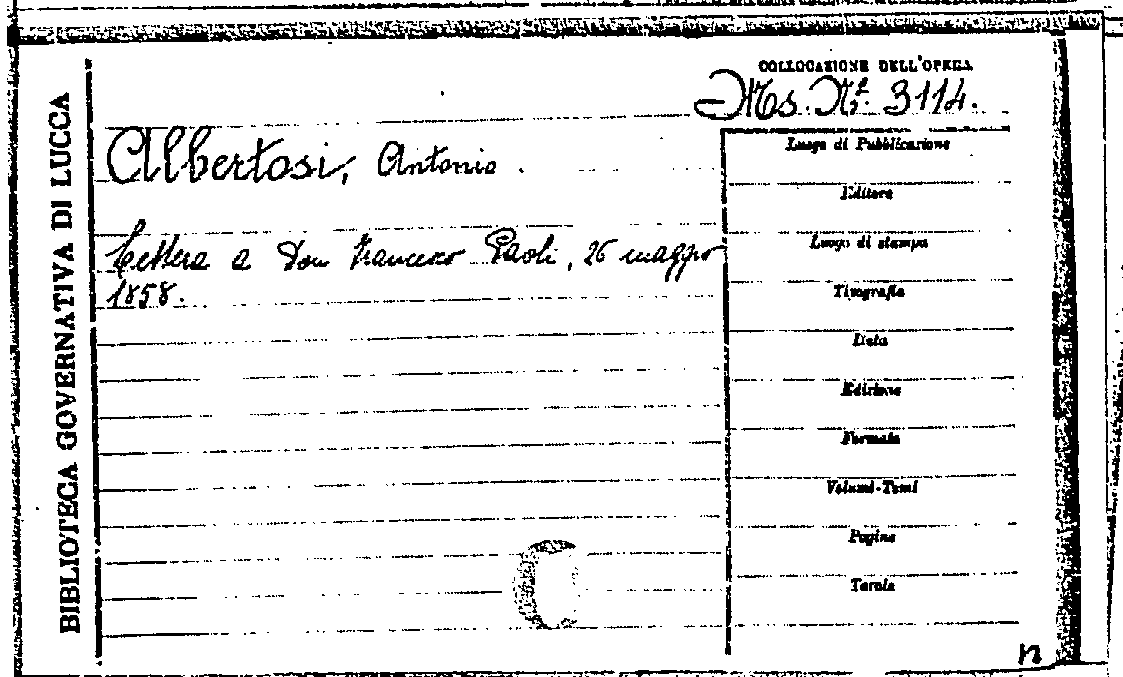 BIBLIOTECA GOVERNATIVA DI LUCCA
COLLOCAZIONE DELL'OPERA
Ms. N.º 3114.
Albertosi, Antonio.
Lettera a Don Francesco Paoli, 26 maggio
1858.
Luogo di Pubblicazione
Editore
Luogo di stampa
Tipografia
Data
Edizione
Formato
Volumi-Tomi
Pagine
Tavole